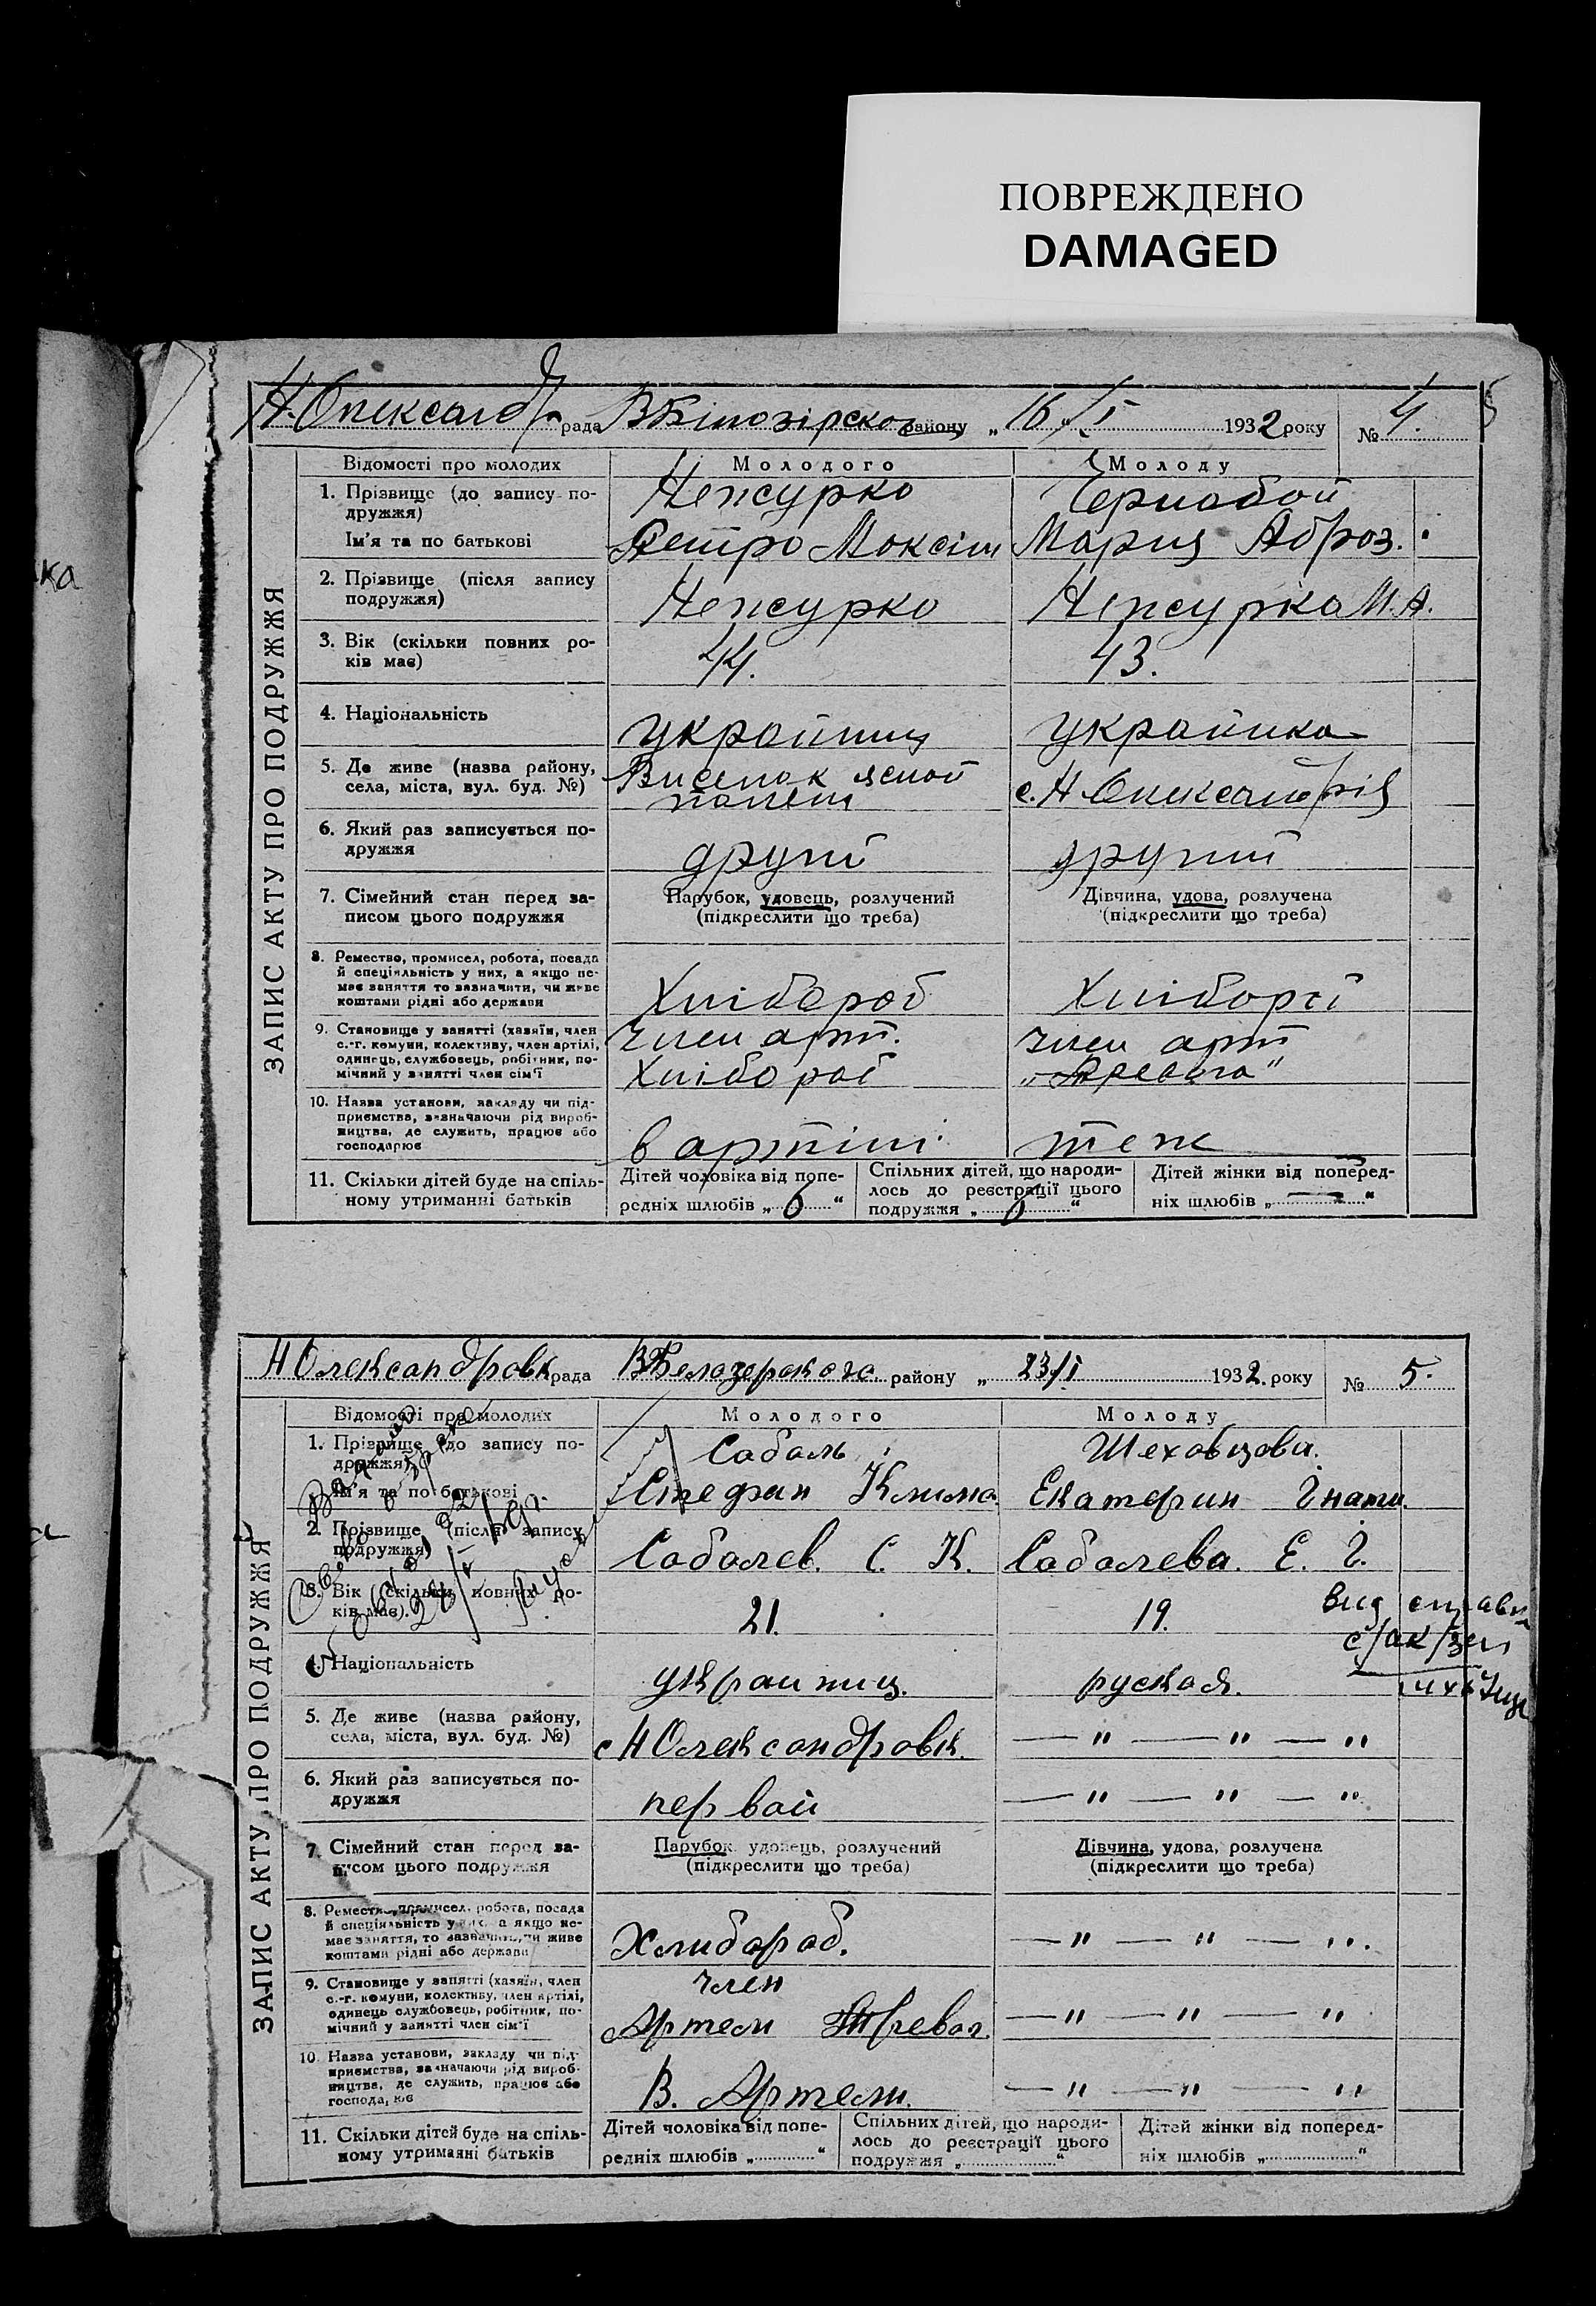 ПОВРЕЖДЕНО
DAMAGED
Н. Олександр рада ВБілозірско району „ 16/I 1932 року № 4.
ЗАПИС АКТУ ПРО ПОДРУЖЖЯ
Відомості про молодих Молодого Молоду
1. Прізвище (до запису подружжя) Непсурко Чернобой
Ім'я та по батькові Петро Моксім Мария Аброз.
2. Прізвище (після запису подружжя) Непсурко Непсурко М. А.
3. Вік (скільки повних років має) 44. 43.
4. Національність українец украинка
5. Де живе (назва району, села, міста, вул. буд. №) Виселок ясной полем с. Н Олександрія
6. Який раз записується подружжя другий другий
7. Сімейний стан перед записом цього подружжя Парубок, удовець, розлучений (підкреслити що треба) Дівчина, удова, розлучена (підкреслити що треба)
8. Ремество, промисел, робота, посада й спеціяльність у них, а якщо немає заняття то зазначити, чи живе коштами рідні або держави Хлібороб Хлібороб
9. Становище у занятті (хазяїн, член с.-г. комуни, колективу, член артілі, одинець, службовець, робітник, помічний у занятті член сім'ї Член арт. Хлібороб член арт
10. Назва установи, закладу чи підприємства, зазначаючи рід виробництва, де служить, працює або господарює в артілі теж
11. Скільки дітей буде на спільному утриманні батьків Дітей чоловіка від попередніх шлюбів „ 6 “ Спільних дітей, що народилось до реєстрації цього подружжя „ “ Дітей жінки від попередніх шлюбів „ — “
Н Олександровк рада ВБелозерского району „ 23/I 1932. року № 5.
ЗАПИС АКТУ ПРО ПОДРУЖЖЯ
Відомості про молодих Молодого Молоду
1. Прізвище (до запису подружжя) Соболь Шеховцова.
Ім'я та по батькові Стефан Клима Екатерин Гнати.
2. Прізвище (після запису подружжя) Соболев. С. К. Соболева. Е. Г.
3. Вік (скільки повних років має). 21. 19.
4. Національність украинец. руская.
5. Де живе (назва району, села, міста, вул. буд. №) с Н Олександровк. — " — " — "
6. Який раз записується подружжя первой — " — " — "
7. Сімейний стан перед записом цього подружжя Парубок, удовець, розлучений (підкреслити що треба) Дівчина, удова, розлучена (підкреслити що треба)
8. Ремество, промисел, робота, посада й спеціяльність у них, а якщо немає заняття, то зазначити, чи живе коштами рідні або держави Хлибороб. — " — " — ".
9. Становище у занятті (хазяїн, член с.-г. комуни, колективу, член артілі, одинець службовець, робітник, помічний у занятті член сім'ї член Артели — " — " — "
10. Назва установи, закладу чи підприємства, зазначаючи рід виробництва, де служить, працює або господарює В. Артели. — " — " — "
11. Скільки дітей буде на спільному утриманні батьків Дітей чоловіка від попередніх шлюбів „ “ Спільних дітей, що народилось до реєстрації цього подружжя „ “ Дітей жінки від попередніх шлюбів „ “